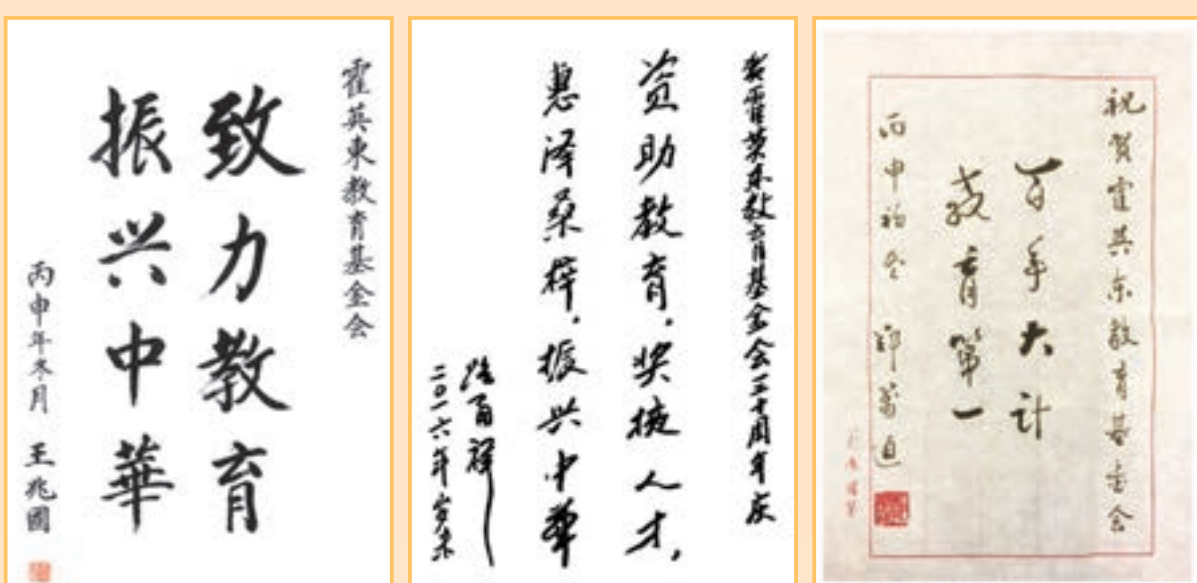 霍英東教育基金会
致力教育
振兴中華
丙申年冬月 王兆國
贺霍英东教育基金会三十周年庆
资助教育.奖掖人才,
惠泽桑梓.振兴中华
路甬祥
二〇一六年岁末
祝贺霍英东教育基金会
百年大计
教育第一
丙申初冬